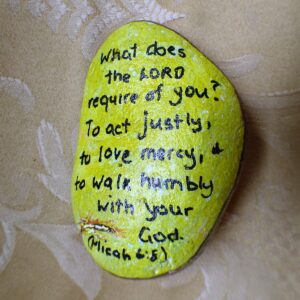 What does
the LORD
require of you?
To act justly,
to love mercy, &
to walk humbly
with your
God.
(Micah 6:8)